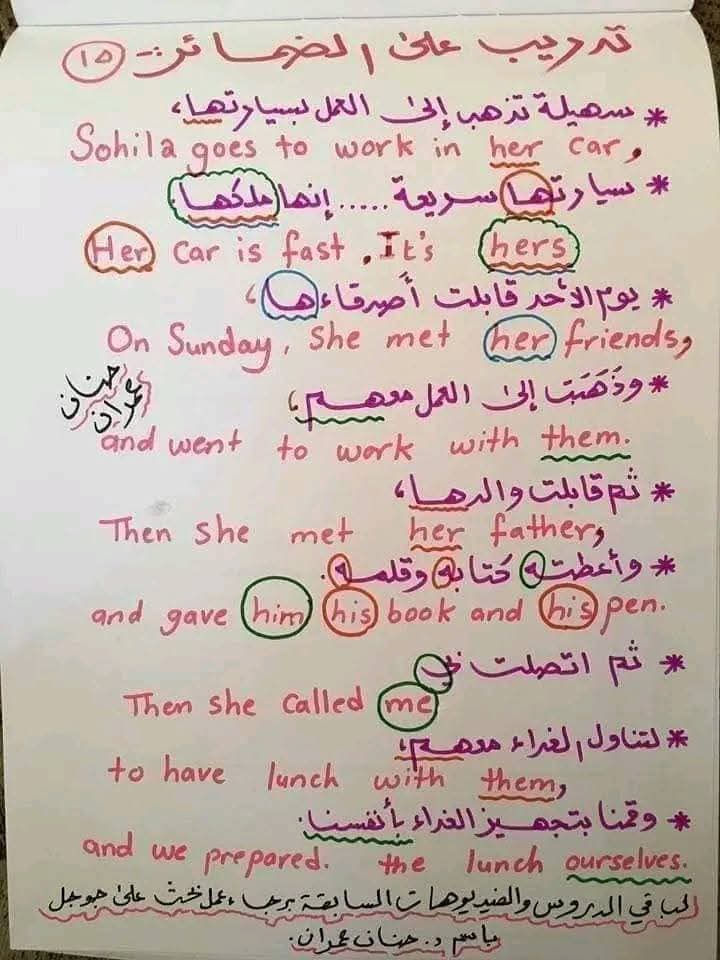 تدريب على الضمائر ١٥
* سهيلة تذهب إلى العمل بسيارتها،
Sohila goes to work in her car,
* سيارتها سريعة ..... إنها ملكها.
Her car is fast, It's hers
* يوم الأحد قابلت أصدقاءها،
On Sunday, she met her friends,
* وذَهَبَت إلى العمل معهم،
حنان عمران
and went to work with them.
* ثم قابلت والدها،
Then she met her father,
* وأعطته كتابه وقلمه.
and gave him his book and his pen.
* ثم اتصلت بي
Then she called me
* لتناول الغداء معهم،
to have lunch with them,
* وقمنا بتجهيز الغداء بأنفسنا.
and we prepared. the lunch ourselves.
لباقي الدروس والفيديوهات السابقة برجاء عمل بحث على جوجل
باسم د. حنان عمران.